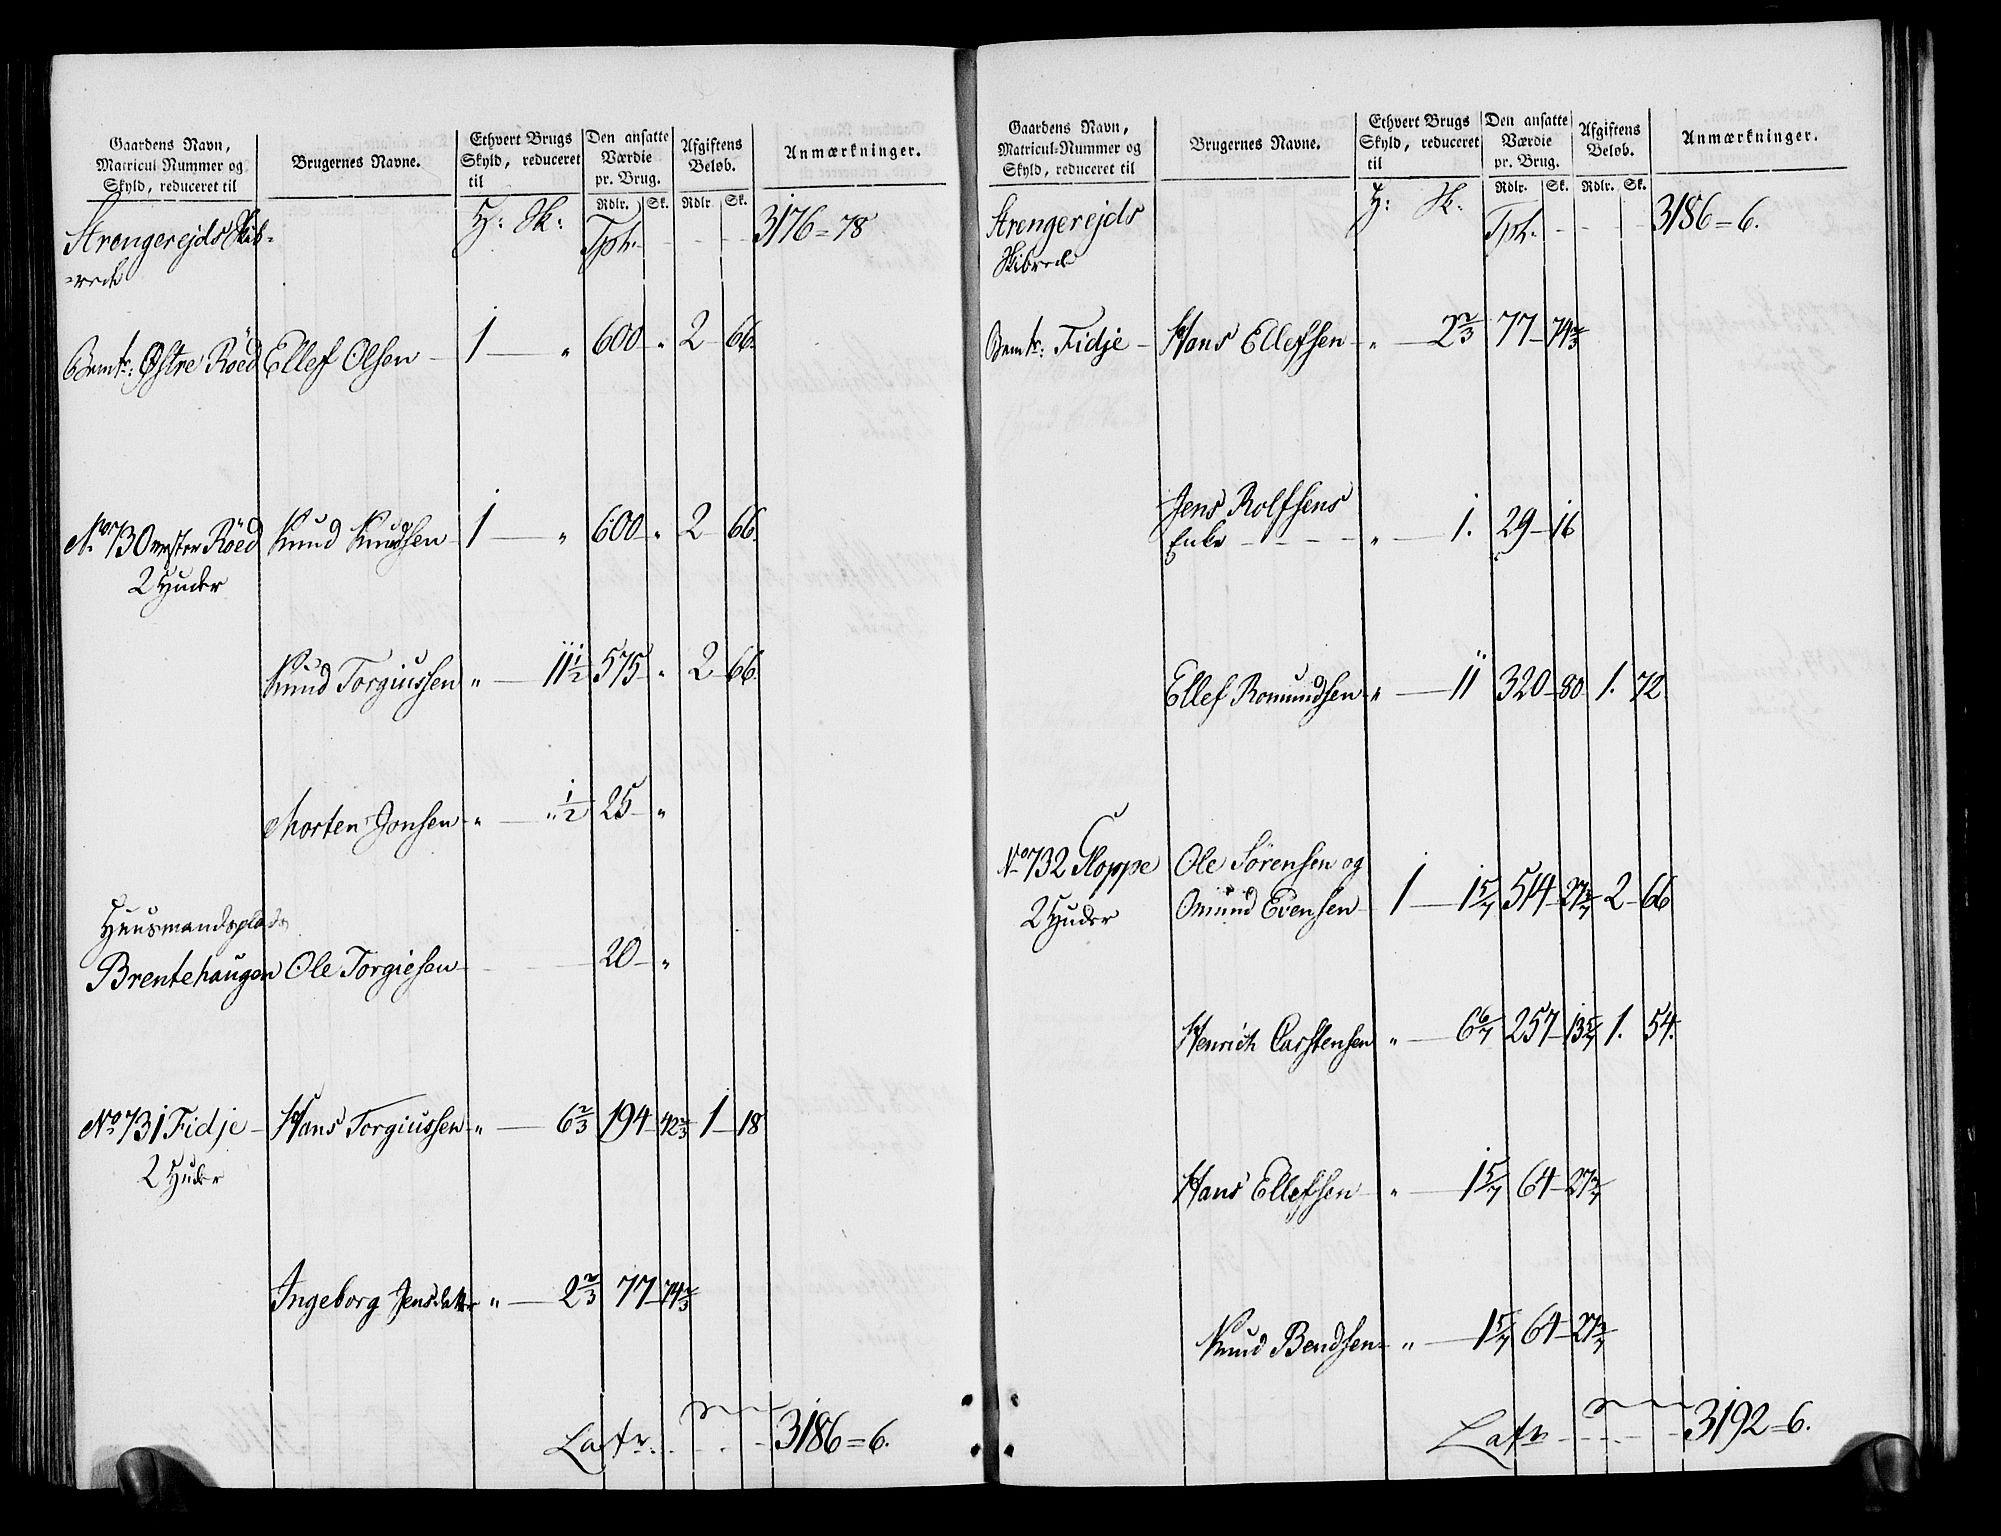 Gaardens Navn, Matricul Nummer og Skyld, reduceret til | Brugernes Navne. | Ethvert Brugs Skyld, reduceret til | Den ansatte Værdie pr. Brug. | Afgiftens Beløb. | Anmærkninger.
Rdlr. Sk. Rdlr. Sk.
Strengereids Skib- H: Sk: Tpt. - - - - 3176=78
=rede
Bemte: Østre Röed Ellef Olsen 1 — „ 600 „ 2 66.
No 730 vester Röed Knud Knudsen 1 — „ 600 „ 2 66.
2 Huder
Knud Torgiussen „ — 11 1/2 575 „ 2 66.
Morten Jonsen „ — „ 1/2 25 „
Huusmandsplads
Brentehaugen Ole Torgiesen 20 „
No 731 Fidje Hans Torgiussen „ — 6 2/3 194 42 2/3 1 18
2 Huder
Ingeborg Jensdatter „ — 2 2/3 77 74 2/3
Latr. - - - 3186=6.
Gaardens Navn, Matricul-Nummer og Skyld, reduceret til | Brugernes Navne. | Ethvert Brugs Skyld, reduceret til | Den ansatte Værdie pr. Brug. | Afgiftens Beløb. | Anmærkninger.
Rdlr. Sk. Rdlr. Sk.
Strengereids H: Sk. Tpt. - - - - 3186=6.
Skibrede
Bemte: Fidje Hans Ellefsen „ — 2 2/3 77 74 2/3
Jens Rolfsens
Enke - - - - „ — 1. 29 16
Ellef Romundsen „ — 11 320 80 1. 72
No 732 Gloppe Ole Sörensen og
2 Huder Omund Evensen 1 — 1 5/7 514 27 3/7 2 66
Henrich Carstensen „ — 6 6/7 257 13 5/7 1. 54.
Hans Ellefsen „ — 1 5/7 64 27 3/7
Knud Bendsen „ — 1 5/7 64 27 3/7
Latr. - - - - 3192=6.